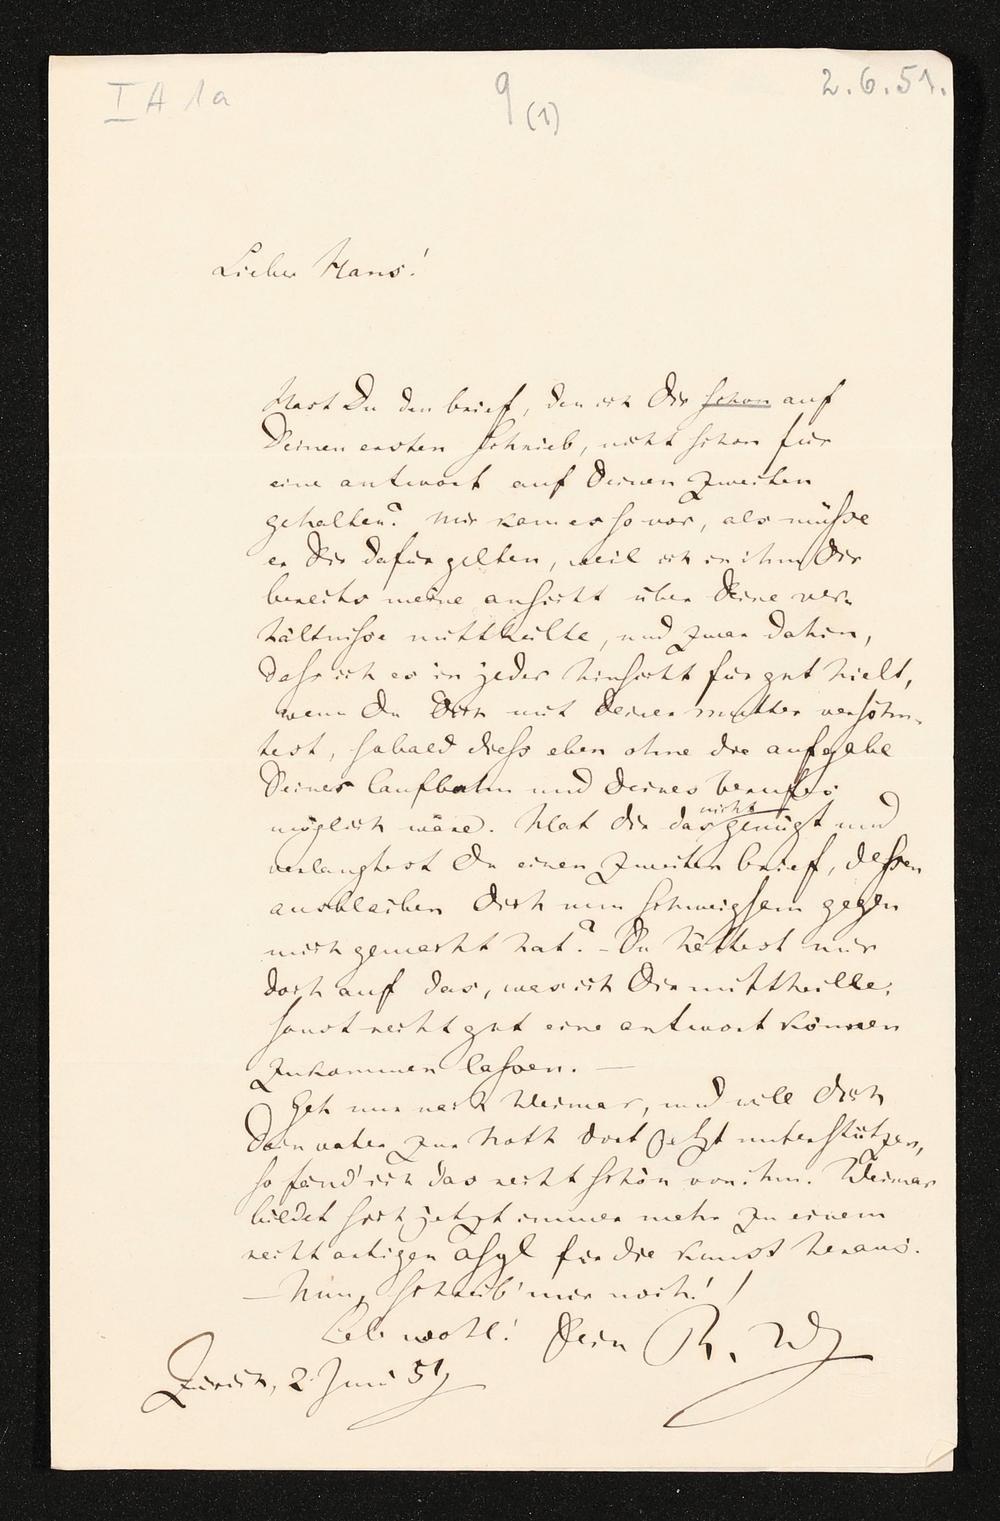 I A 1a
9 (1)
2.6.51.
Lieber Hans!
Hast Du den brief, den ich Dir schon auf
Deinen ersten schrieb, nicht schon für
eine antwort auf Deinen zweiten
gehalten? Mir kam es so vor, als müsse
er Dir dafür gelten, weil ich in ihm Dir
bereits meine ansicht über Deine ver-
hältnisse mittheilte, und zwar dahin,
dass ich es in jeder hinsicht für gut hielt,
wenn Du Dich mit Deiner mutter versöhn-
test, sobald diess eben ohne die aufgabe
Deiner laufbahn und Deines berufes
möglich wäre. Hat dir das nicht genügt und
verlangtest Du einen zweiten brief, dessen
ausbleiben Dich nun schweigsam gegen
mich gemacht hat? – Du hättest mir
doch auf das, was ich Dir mittheilte,
sonst recht gut eine antwort können
zukommen lassen. —
Geh nur nach Weimar, und will Dich
Dein vater zur Noth dort jetzt unterstützen,
so fänd' ich das recht schön von ihm. Weimar
bildet sich jetzt immer mehr zu einem
recht artigen Asyl für die kunst heraus.
– Nun, schreib' mir noch! /
Leb wohl! Dein R. W.
Zürich, 2 Juni 51